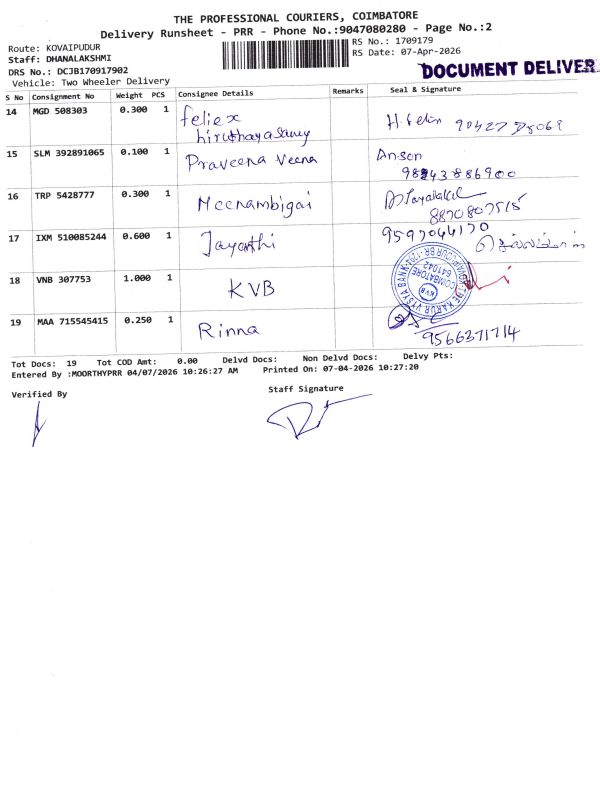 THE PROFESSIONAL COURIERS, COIMBATORE
Delivery Runsheet - PRR - Phone No.:9047080280 - Page No.:2
Route: KOVAIPUDUR
RS No.: 1709179
Staff: DHANALAKSHMI
RS Date: 07-Apr-2026
DRS No.: DCJB170917902
DOCUMENT DELIVER
Vehicle: Two Wheeler Delivery
S No Consignment No Weight PCS Consignee Details Remarks Seal & Signature
14 MGD 508303 0.300 1 feliex
hiruthayasamy
H. Felix
15 SLM 392891065 0.100 1 Praveena Veena Anson
16 TRP 5428777 0.300 1 Meenambigai
8870807515
17 IXM 510085244 0.600 1 Jayanthi 9597044170
18 VNB 307753 1.000 1 KVB
THE KARUR VYSYA BANK
COIMBATORE
641042
KVB
19 MAA 715545415 0.250 1 Rinna 9566371714
Tot Docs: 19 Tot COD Amt: 0.00 Delvd Docs: Non Delvd Docs: Delvy Pts:
Entered By :MOORTHYPRR 04/07/2026 10:26:27 AM Printed On: 07-04-2026 10:27:20
Verified By
Staff Signature